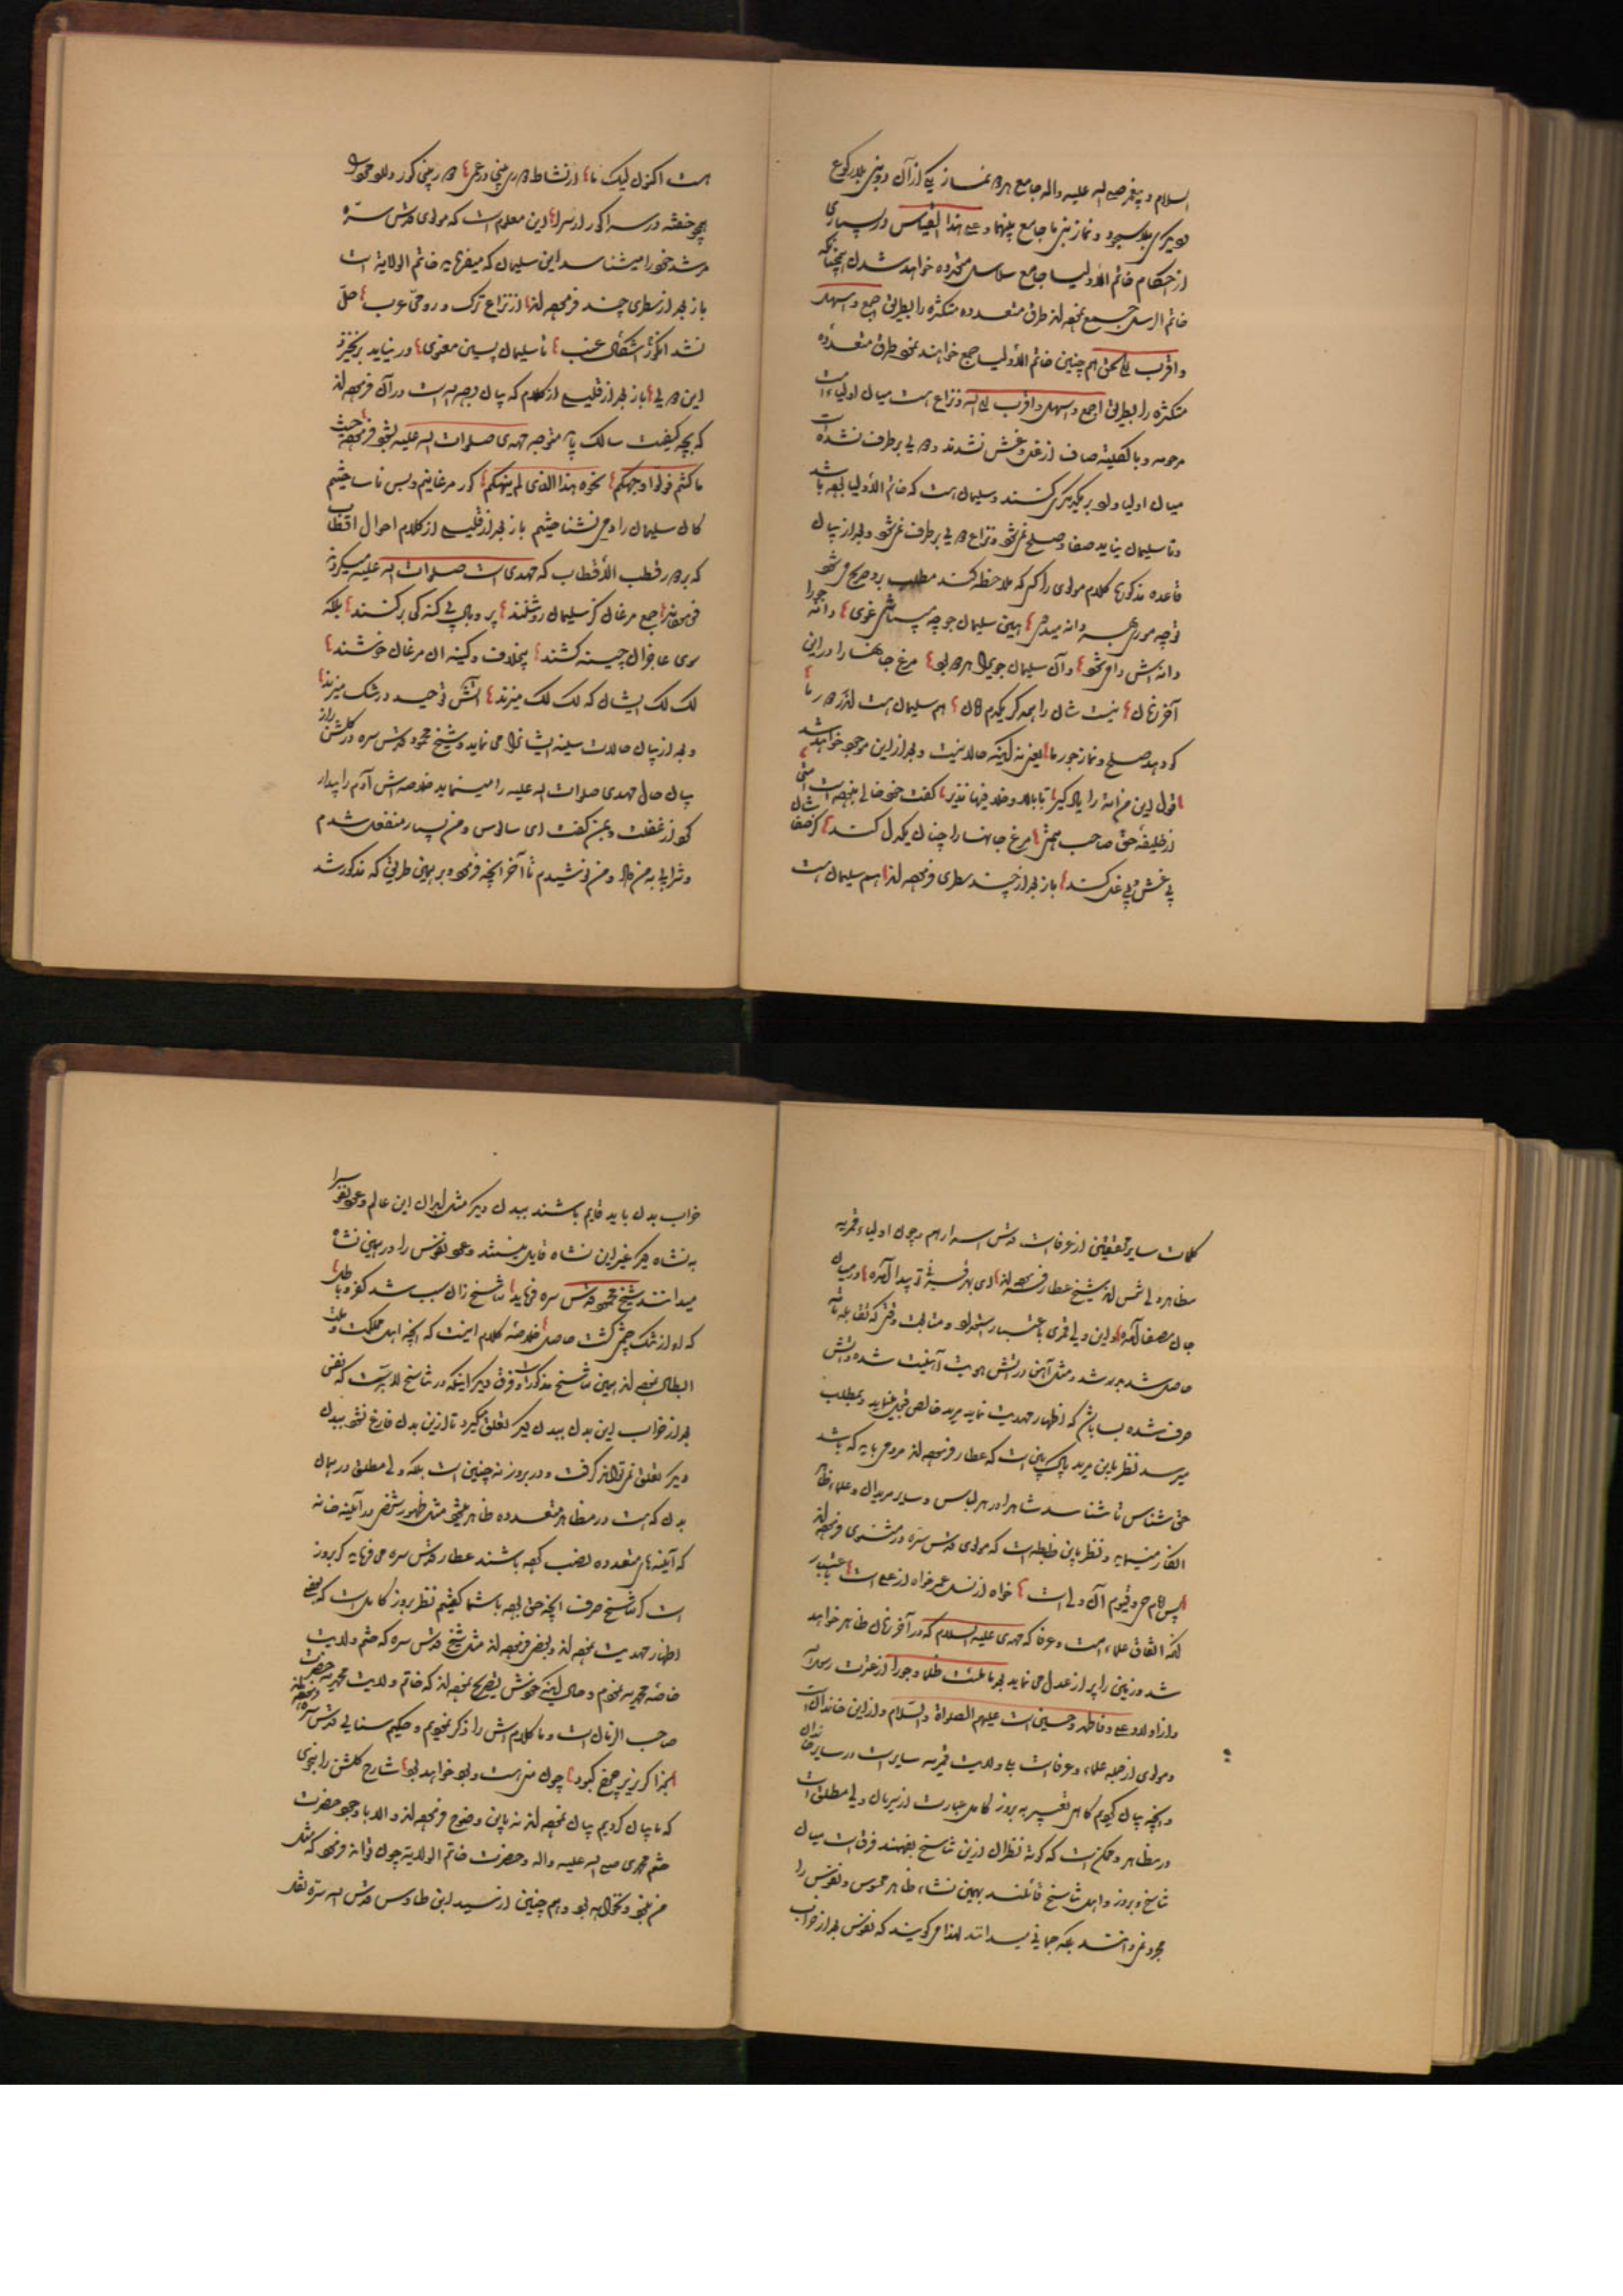 السلام و پیغمبر صلی الله علیه واله جامع هر دو نماز یکی از آن دو بنی بلا رکوع
دیگری بلا سجود و نماز بنی ما جامع بینهما و علی هذا القیاس در بسیاری
از احکام خاتم الأولیا جامع سلاسل خواهد شدن چنانکه
خاتم الرسل جمیع نموده‌اند طرق متعدده متکثره را بطریق اجمع و اسهل
و اقرب الی الحق هم چنین خاتم الأولیا جمع خواهند نمود طرق متعدده
متکثره را بطریق اجمع و اسهل و اقرب الی الله و نزاع است میان اولیاء امت
مرحومه و بالکلیه صاف از غل و غش نشدند و دویی برطرف نشده است
میان اولیا و لهو بر یکدیگر کنند و سلیمان است که خاتم الأولیا بوده باشد
و تا سلیمان نیاید صفا و صلح نمی‌شود و نزاع دویی برطرف نمی‌شود و بعد از بیان
قاعده مذکورها کلام مولوی را کسی که ملاحظه کند مطلب بر او صریح می‌شود
تو چه موری بهر دانه میدوی هین سلیمان جو چه میباشی غوی دانه جو را
دانه‌اش دامی شود و آن سلیمان جوی را هر دو بود مرغ جانها را در این
آخر زمان نیست شان از همدگر یکدم امان هم سلیمان هست اندر دور ما
کو دهد صلح و نماند جور ما یعنی نه اینکه حالا نیست و بعد از این موجود خواهد شد
قول این من امة را یاد گیر تا بالا و خلا فیها نذیر گفت خود خالی نبوده است امتی
از خلیفه حق و صاحب همتی مرغ جانها را چنان یکدل کند کز صفاشان
بی غش و بی غل کند باز بعد از چند سطری فرموده‌اند هم سلیمان هست
هست اکنون لیک ما از نشاط دور بینی در عمی دور بینی کور دارد مرد را
همچو خفته در سرا کور از سرا این معلوم است که مولوی قدس سره
مرشد خود را میشناسد این سلیمان که میفرماید خاتم الولایة است
باز بعد از سطری چند فرموده‌اند از نزاع ترک و رومی و عرب حل
نشد اشکال عنب تا سلیمان لسین معنوی در نیاید برنخیزد
این دویی باز بعد از قلیلی از کلام که بیان وجه الله است در آن فرموده‌اند
که بچه کیفیت سالک باید متوجه مهدی صلوات الله علیه بشود فرموده حیث
ما کنتم فولوا وجهکم نحوه هذا الذی لم ینهکم کور مرغانیم و بس ناساختیم
کان سلیمان را دمی نشناختیم باز بعد از قلیلی از کلام احوال اقطاب
که بر دور قطب الأقطاب که مهدی است صلوات الله علیه میگردند
فرموده‌اند جمع مرغان کز سلیمان روشنند پر و بال بی گنه کی برکنند بلکه
سوی عاجزان چینه کشند بی خلاف و کینه آن مرغان خوشند
لک لک ایشان که لک لک میزند آتش توحید در شک میزند
و بعد از بیان حالات سلیمان ایشان را می نماید و شیخ محمود قدس سره در گلشن راز
بیان حال مهدی صلوات الله علیه را مینماید خلاصه‌اش آدم را بیدار
کرد از غفلت و بمن گفت ای سالوس و من بسیار منفعل شدم
و شرابی به من داد و من نوشیدم تا آخر آنچه فرموده و بر همین طریق که مذکور شد
کلمات سایر محققین از عرفاست قدس اسرارهم و چون اولیاء قمریه
مظاهر ولی شمس اند شیخ عطار فرموده‌اند ای بهر تو پیدا آمده در میان
جان مصفا آمده و این ولی قمری باعتبار استمرار و متابعت وقتی که تقابله تامه
حاصل شد بدر شد و مثل آهن در آتش هویت آهنیت شده آتش
صرف شده بسا باشد که اظهار مهدیت نماید مرید خالص قبول نماید و بمطلب
میرسد نظر باین مرید پاک بین است که عطار فرموده‌اند مردمی باید که باشد
حق شناس تا شناسد شاه را در هر لباس و سایر مریدان و علماء ظاهر
انکار مینمایند و نظر باین ضابطه است که مولوی قدس سره در مثنوی فرموده‌اند
پس امام حی و قیوم آن ولی است خواه از نسل عمر خواه از علی است باعتبار
آنکه اتفاق علماء امت و عرفا که مهدی علیه السلام که در آخر زمان ظاهر خواهد
شد و زمین را پر از عدل می نماید بعد ما ملئت ظلما و جورا از عترت رسول
و از اولاد علی و فاطمه و حسین است علیهم الصلواة والسلام و از این خاندان است
و مولوی از جمله علماء و عرفاست بلی ولایت قمریه سایر است در سایر خاندان
و آنچه بیان کردیم گاهی تعبیر به بروز کامل عبارت از سریان ولی مطلق است
در مظاهر و ممکن است که کوته نظران از این تناسخ بفهمند فرق است میان
تناسخ و بروز و اهل تناسخ قائلند بهمین نشاء ظاهر محسوس و نفوس را
مجرد نمی‌دانند بلکه جسمانی میدانند لهذا می‌گویند که نفوس بعد از خراب
خراب بدن باید قایم باشند ببدن دیگر مثل ابدان این عالم و عود نفوس را
به نشاه دیگر غیر این نشاه قایل نیستند و عود نفوس را در همین نشاه
میدانند شیخ محمود قدس سره فرماید تناسخ زان سبب شد کفر و باطل
که او از تنگ چشمی گشت حاصل خلاصه کلام اینست که آنچه اهل حکمت و ملت
ابطال نموده‌اند همین تناسخ مذکور است و فرق دیگر اینکه در تناسخ لا بد است که نفس
بعد از خراب این بدن ببدن دیگر تعلق گیرد تا از این بدن فارغ نشود ببدن
دیگر تعلق نمی‌تواند گرفت و در بروز نه چنین است بلکه ولی مطلق در همان
بدن که هست در مظاهر متعدده ظاهر میشود مثل ظهور شخص در آئینه خانه
که آئینه‌های متعدده نصب کرده باشند عطار قدس سره می فرماید که بروز
است نه تناسخ صرف آنچه حق بود با شما گفتیم نظر به بروز کامل است که بعضی
اظهار مهدیت نموده‌اند و بعضی فرموده‌اند مثل شیخ قدس سره که ختم ولایت
خاصه محمدیه نمودم و حال اینکه خودش تصریح نموده‌اند که خاتم ولایت محمدیه حضرت
صاحب الزمان است و ما کلامش را ذکر نمودیم و حکیم سنایی قدس سره فرموده‌اند
چون منی هست و بود خواهد بود شارح گلشن را نحوی
که ما بیان کردیم بیان نموده‌اند نه باین وضوح فرموده‌اند و الا با وجود حضرت
ختم محمدی صلی الله علیه واله و حضرت خاتم الولایة چون تواند فرمود که مثل
من نبود و نخواهد بود و هم چنین از سید ابن طاوس قدس الله سره نقل